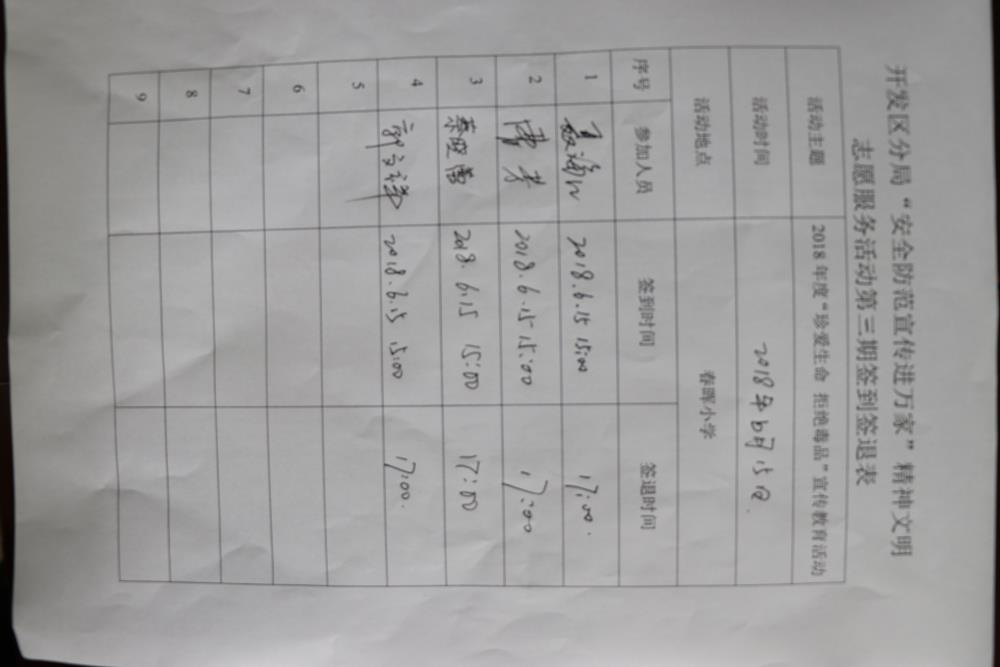 开发区分局“安全防范宣传进万家”精神文明
志愿服务活动第三期签到签退表
活动主题 2018年度“珍爱生命 拒绝毒品”宣传教育活动
活动时间 2018年6月15日
活动地点 春晖小学
序号 参加人员 签到时间 签退时间
1 2018.6.15 15:00 17:00.
2 2018.6.15 15:00 17:00
3 蔡晓雷 2018.6.15 15:00 17:00
4 2018.6.15 15:00 17:00.
5
6
7
8
9